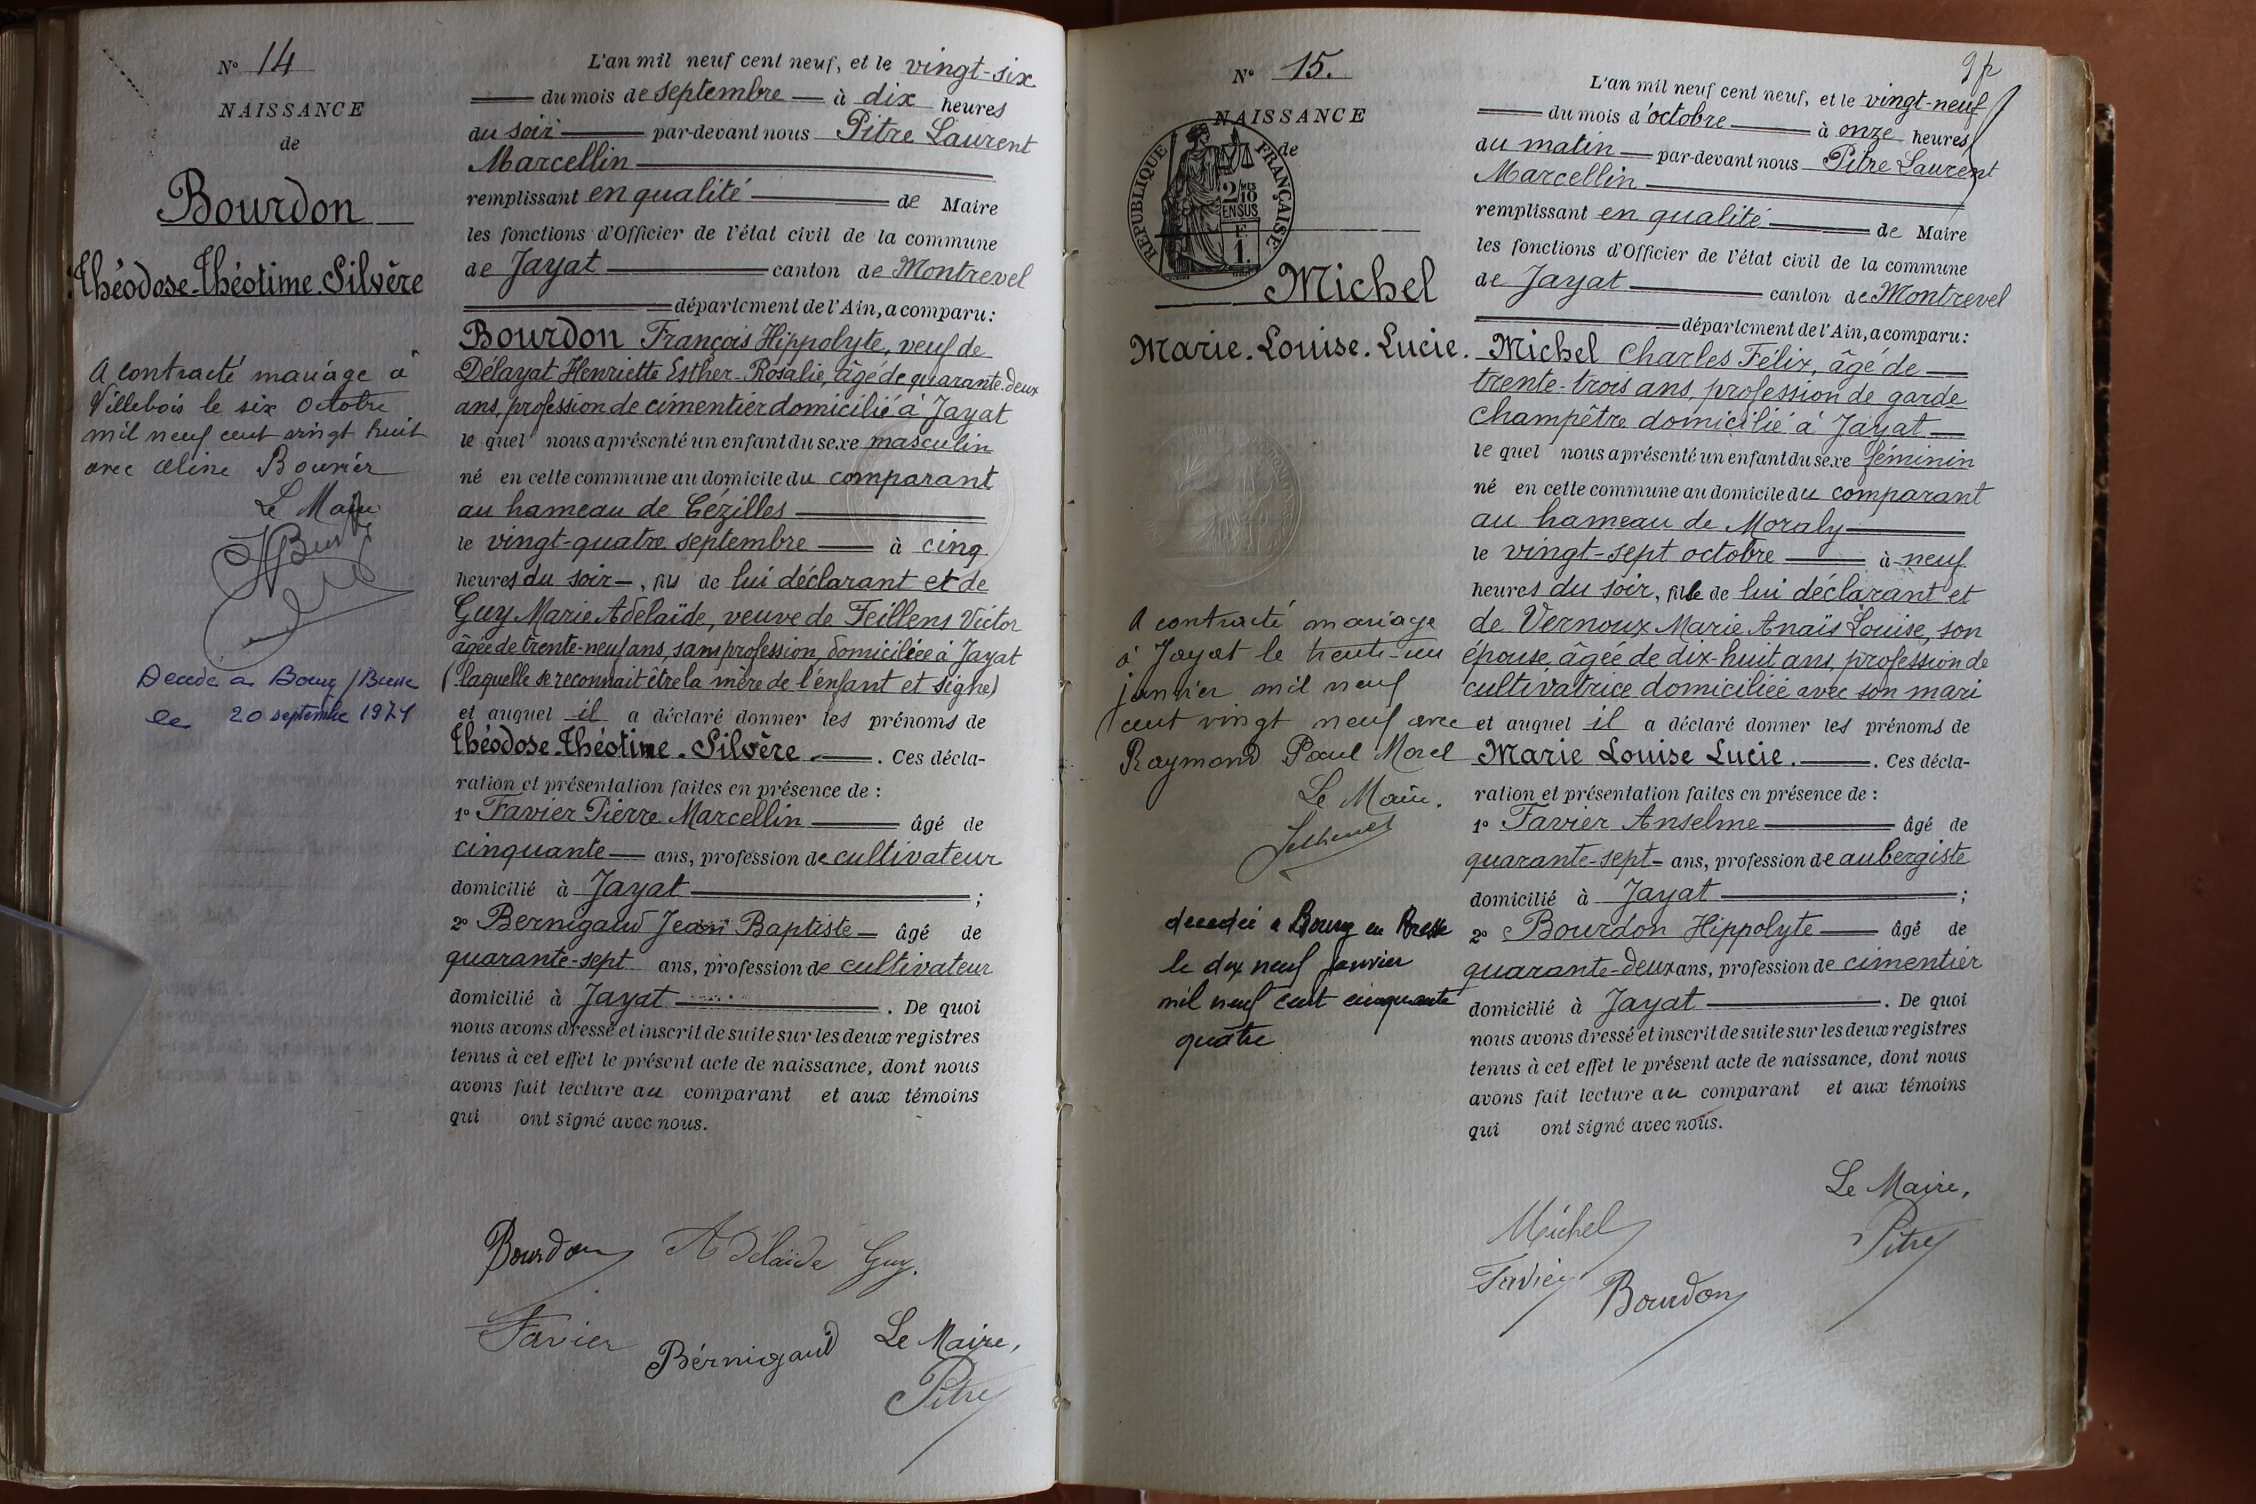 N° 14
NAISSANCE
de
Bourdon
Théodose-Théotime-Silvère
A contracté mariage à
Villebois le six Octobre
mil neuf cent vingt huit
avec Céline Bouvier
Le Maire
Décédé à Bourg/Bresse
le 20 septembre 1971
L'an mil neuf cent neuf, et le vingt-six
du mois de septembre à dix heures
du soir par-devant nous Pitre Laurent
Marcellin
remplissant en qualité de Maire
les fonctions d'Officier de l'état civil de la commune
de Jayat canton de Montrevel
département de l'Ain, a comparu :
Bourdon François Hippolyte, veuf de
Délayat Henriette Esther-Rosalie, âgé de quarante-deux
ans, profession de cimentier domicilié à Jayat
le quel nous a présenté un enfant du sexe masculin
né en cette commune au domicile du comparant
au hameau de Cézilles
le vingt-quatre septembre à cinq
heures du soir, fils de lui déclarant et de
Guy Marie Adelaïde, veuve de Feillens Victor
âgée de trente-neuf ans, sans profession, domiciliée à Jayat
(laquelle se reconnait être la mère de l'enfant et signe)
et auquel il a déclaré donner les prénoms de
Théodose-Théotime-Silvère. Ces décla-
ration et présentation faites en présence de :
1° Favier Pierre Marcellin âgé de
cinquante ans, profession de cultivateur
domicilié à Jayat ;
2° Bernigaud Jean Baptiste âgé de
quarante-sept ans, profession de cultivateur
domicilié à Jayat. De quoi
nous avons dressé et inscrit de suite sur les deux registres
tenus à cet effet le présent acte de naissance, dont nous
avons fait lecture au comparant et aux témoins
qui ont signé avec nous.
Bourdon Adélaïde Guy.
Favier Bérnigaud Le Maire,
Pitre
N° 15.
NAISSANCE
de
REPUBLIQUE FRANÇAISE
2/10 EN SUS
1F.
Michel
Marie-Louise-Lucie.
A contracté mariage
à Jayat le trente-un
janvier mil neuf
cent vingt neuf avec
Raymond Paul Morel
Le Maire.
decedée a Bourg en Bresse
le dix neuf Janvier
mil neuf cent cinquante
quatre
L'an mil neuf cent neuf, et le vingt-neuf
du mois d'octobre à onze heures
du matin par-devant nous Pitre Laurent
Marcellin
remplissant en qualité de Maire
les fonctions d'Officier de l'état civil de la commune
de Jayat canton de Montrevel
département de l'Ain, a comparu :
Michel Charles Félix, âgé de
trente-trois ans, profession de garde
champêtre domicilié à Jayat
le quel nous a présenté un enfant du sexe féminin
né en cette commune au domicile du comparant
au hameau de Moraly
le vingt-sept octobre à neuf
heures du soir, fille de lui déclarant et
de Vernoux Marie Anaïs Louise, son
épouse, âgée de dix-huit ans, profession de
cultivatrice domiciliée avec son mari
et auquel il a déclaré donner les prénoms de
Marie Louise Lucie. Ces décla-
ration et présentation faites en présence de :
1° Favier Anselme âgé de
quarante-sept ans, profession de aubergiste
domicilié à Jayat ;
2° Bourdon Hippolyte âgé de
quarante-deux ans, profession de cimentier
domicilié à Jayat. De quoi
nous avons dressé et inscrit de suite sur les deux registres
tenus à cet effet le présent acte de naissance, dont nous
avons fait lecture au comparant et aux témoins
qui ont signé avec nous.
Le Maire,
Michel Pitre
Favier Bourdon